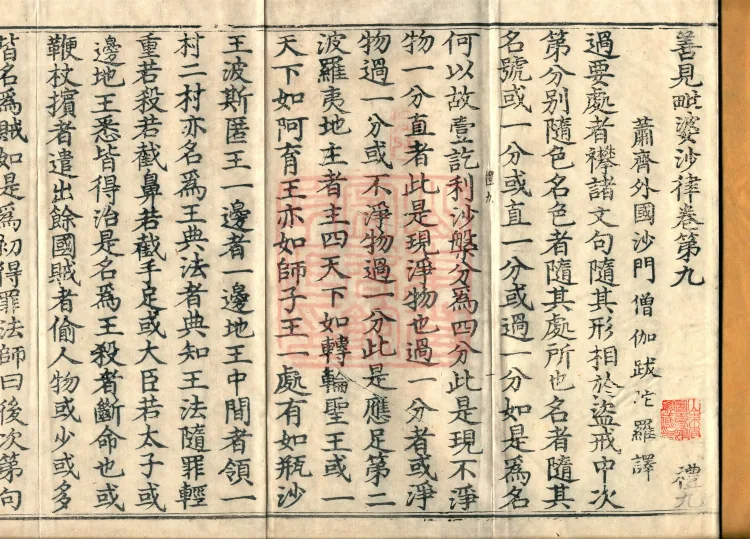 善見毗婆沙律卷第九
蕭齊外國沙門僧伽跋陀羅譯
禮九
過要處者襻諸文句隨其形相於盜戒中次
第分别隨色名色者隨其處所也名者隨其
名號或一分或直一分或過一分如是為名
禮九
何以故壹訖利沙槃分為四分此是現不淨
物一分直者此是現淨物也過一分者或淨
物過一分或不淨物過一分此是應足第二
波羅夷地主者主四天下如轉輪聖王或一
天下如阿育王亦如師子王一處有如瓶沙
王波斯匿王一邊者一邊地王中間者領一
村二村亦名為王典法者典知王法隨罪輕
重若殺若截鼻若截手足或大臣若太子或
邊地王悉皆得治是名為王殺者斷命也或
鞭杖擯者遣出餘國賊者偷人物或少或多
皆名為賊如是為初得罪法師曰後次第句